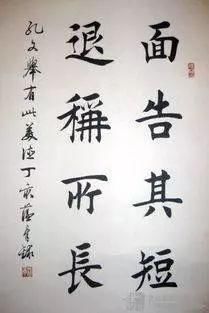 面告其短
退稱所長
孔文舉有此美德丁亥蔭章錄